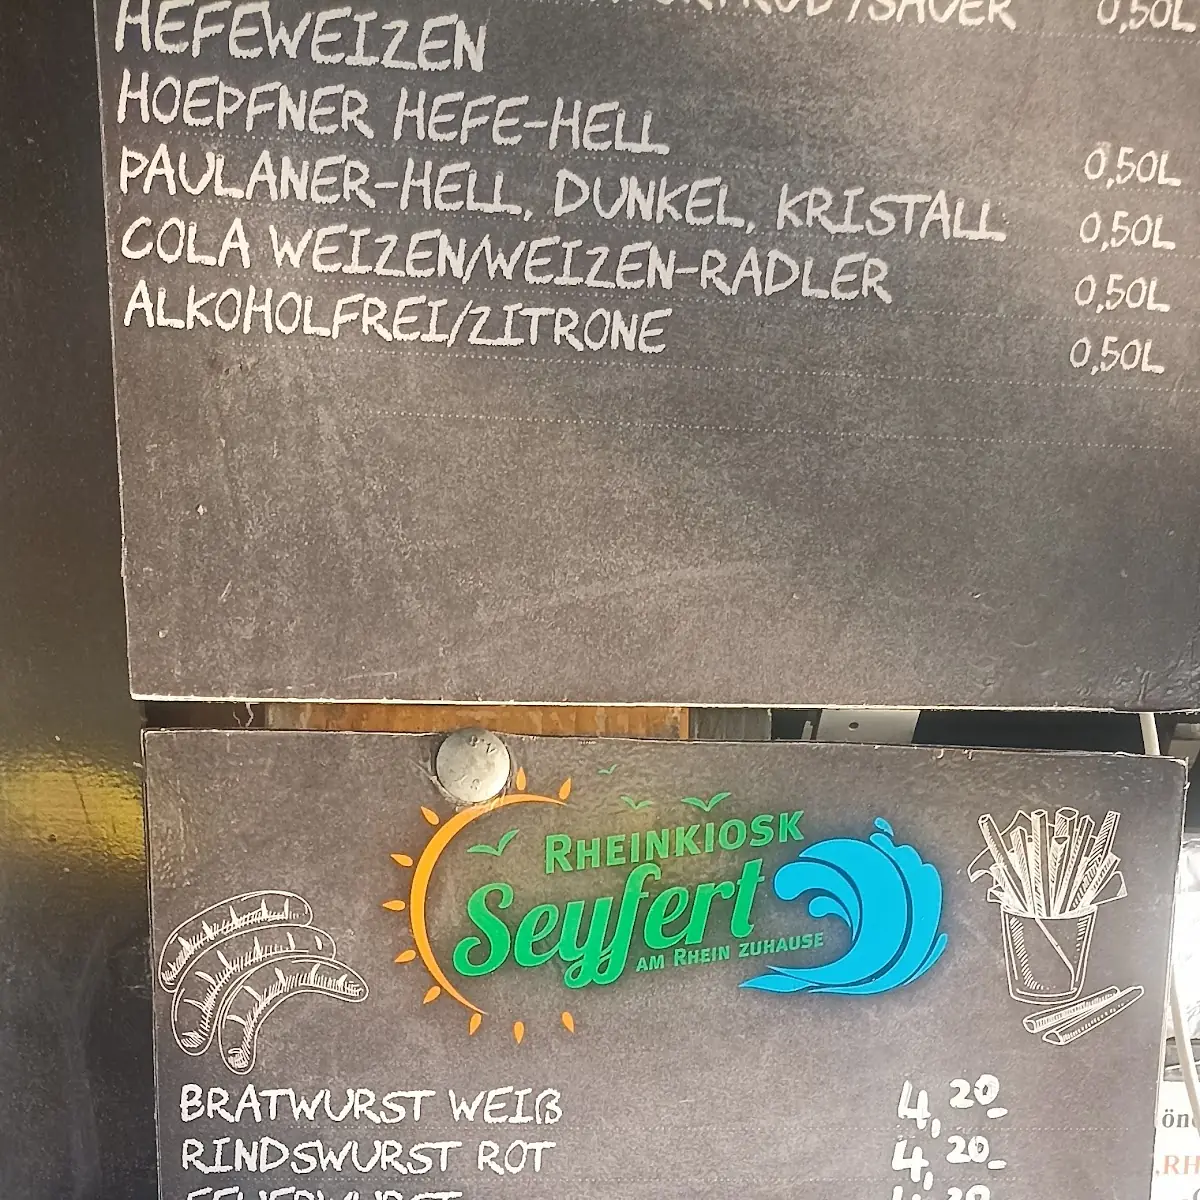 /SAUER 0,50L
HEFEWEIZEN
HOEPFNER HEFE-HELL 0,50L
PAULANER-HELL, DUNKEL, KRISTALL 0,50L
COLA WEIZEN/WEIZEN-RADLER 0,50L
ALKOHOLFREI/ZITRONE 0,50L
RHEINKIOSK
Seyfert
AM RHEIN ZUHAUSE
BRATWURST WEIß 4,20
RINDSWURST ROT 4,20
FEUERWURST 4,20